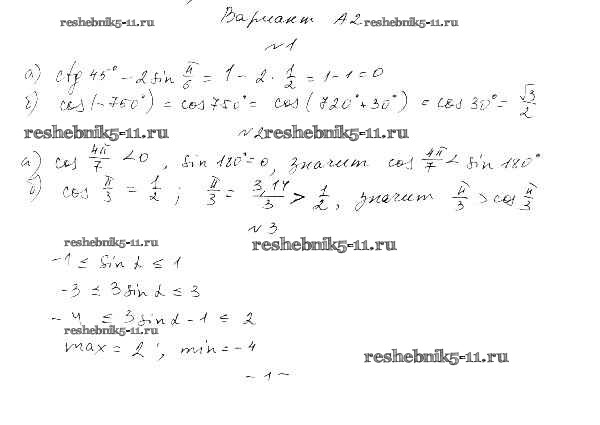 reshebnik5-11.ru Вариант А2 reshebnik5-11.ru
№1
а) ctg 45° - 2 sin π/6 = 1 - 2 · 1/2 = 1 - 1 = 0
б) cos(-750°) = cos 750° = cos(720° + 30°) = cos 30° = √3/2
reshebnik5-11.ru №2 reshebnik5-11.ru
а) cos 4π/7 < 0, sin 180° = 0, значит cos 4π/7 < sin 180°
б) cos π/3 = 1/2; π/3 = 3,14/3 > 1/2, значит π/3 > cos π/3
№3
reshebnik5-11.ru reshebnik5-11.ru
-1 ≤ sin α ≤ 1
-3 ≤ 3 sin α ≤ 3
-4 ≤ 3 sin α - 1 ≤ 2
reshebnik5-11.ru
max = 2; min = -4
reshebnik5-11.ru
- 1 -